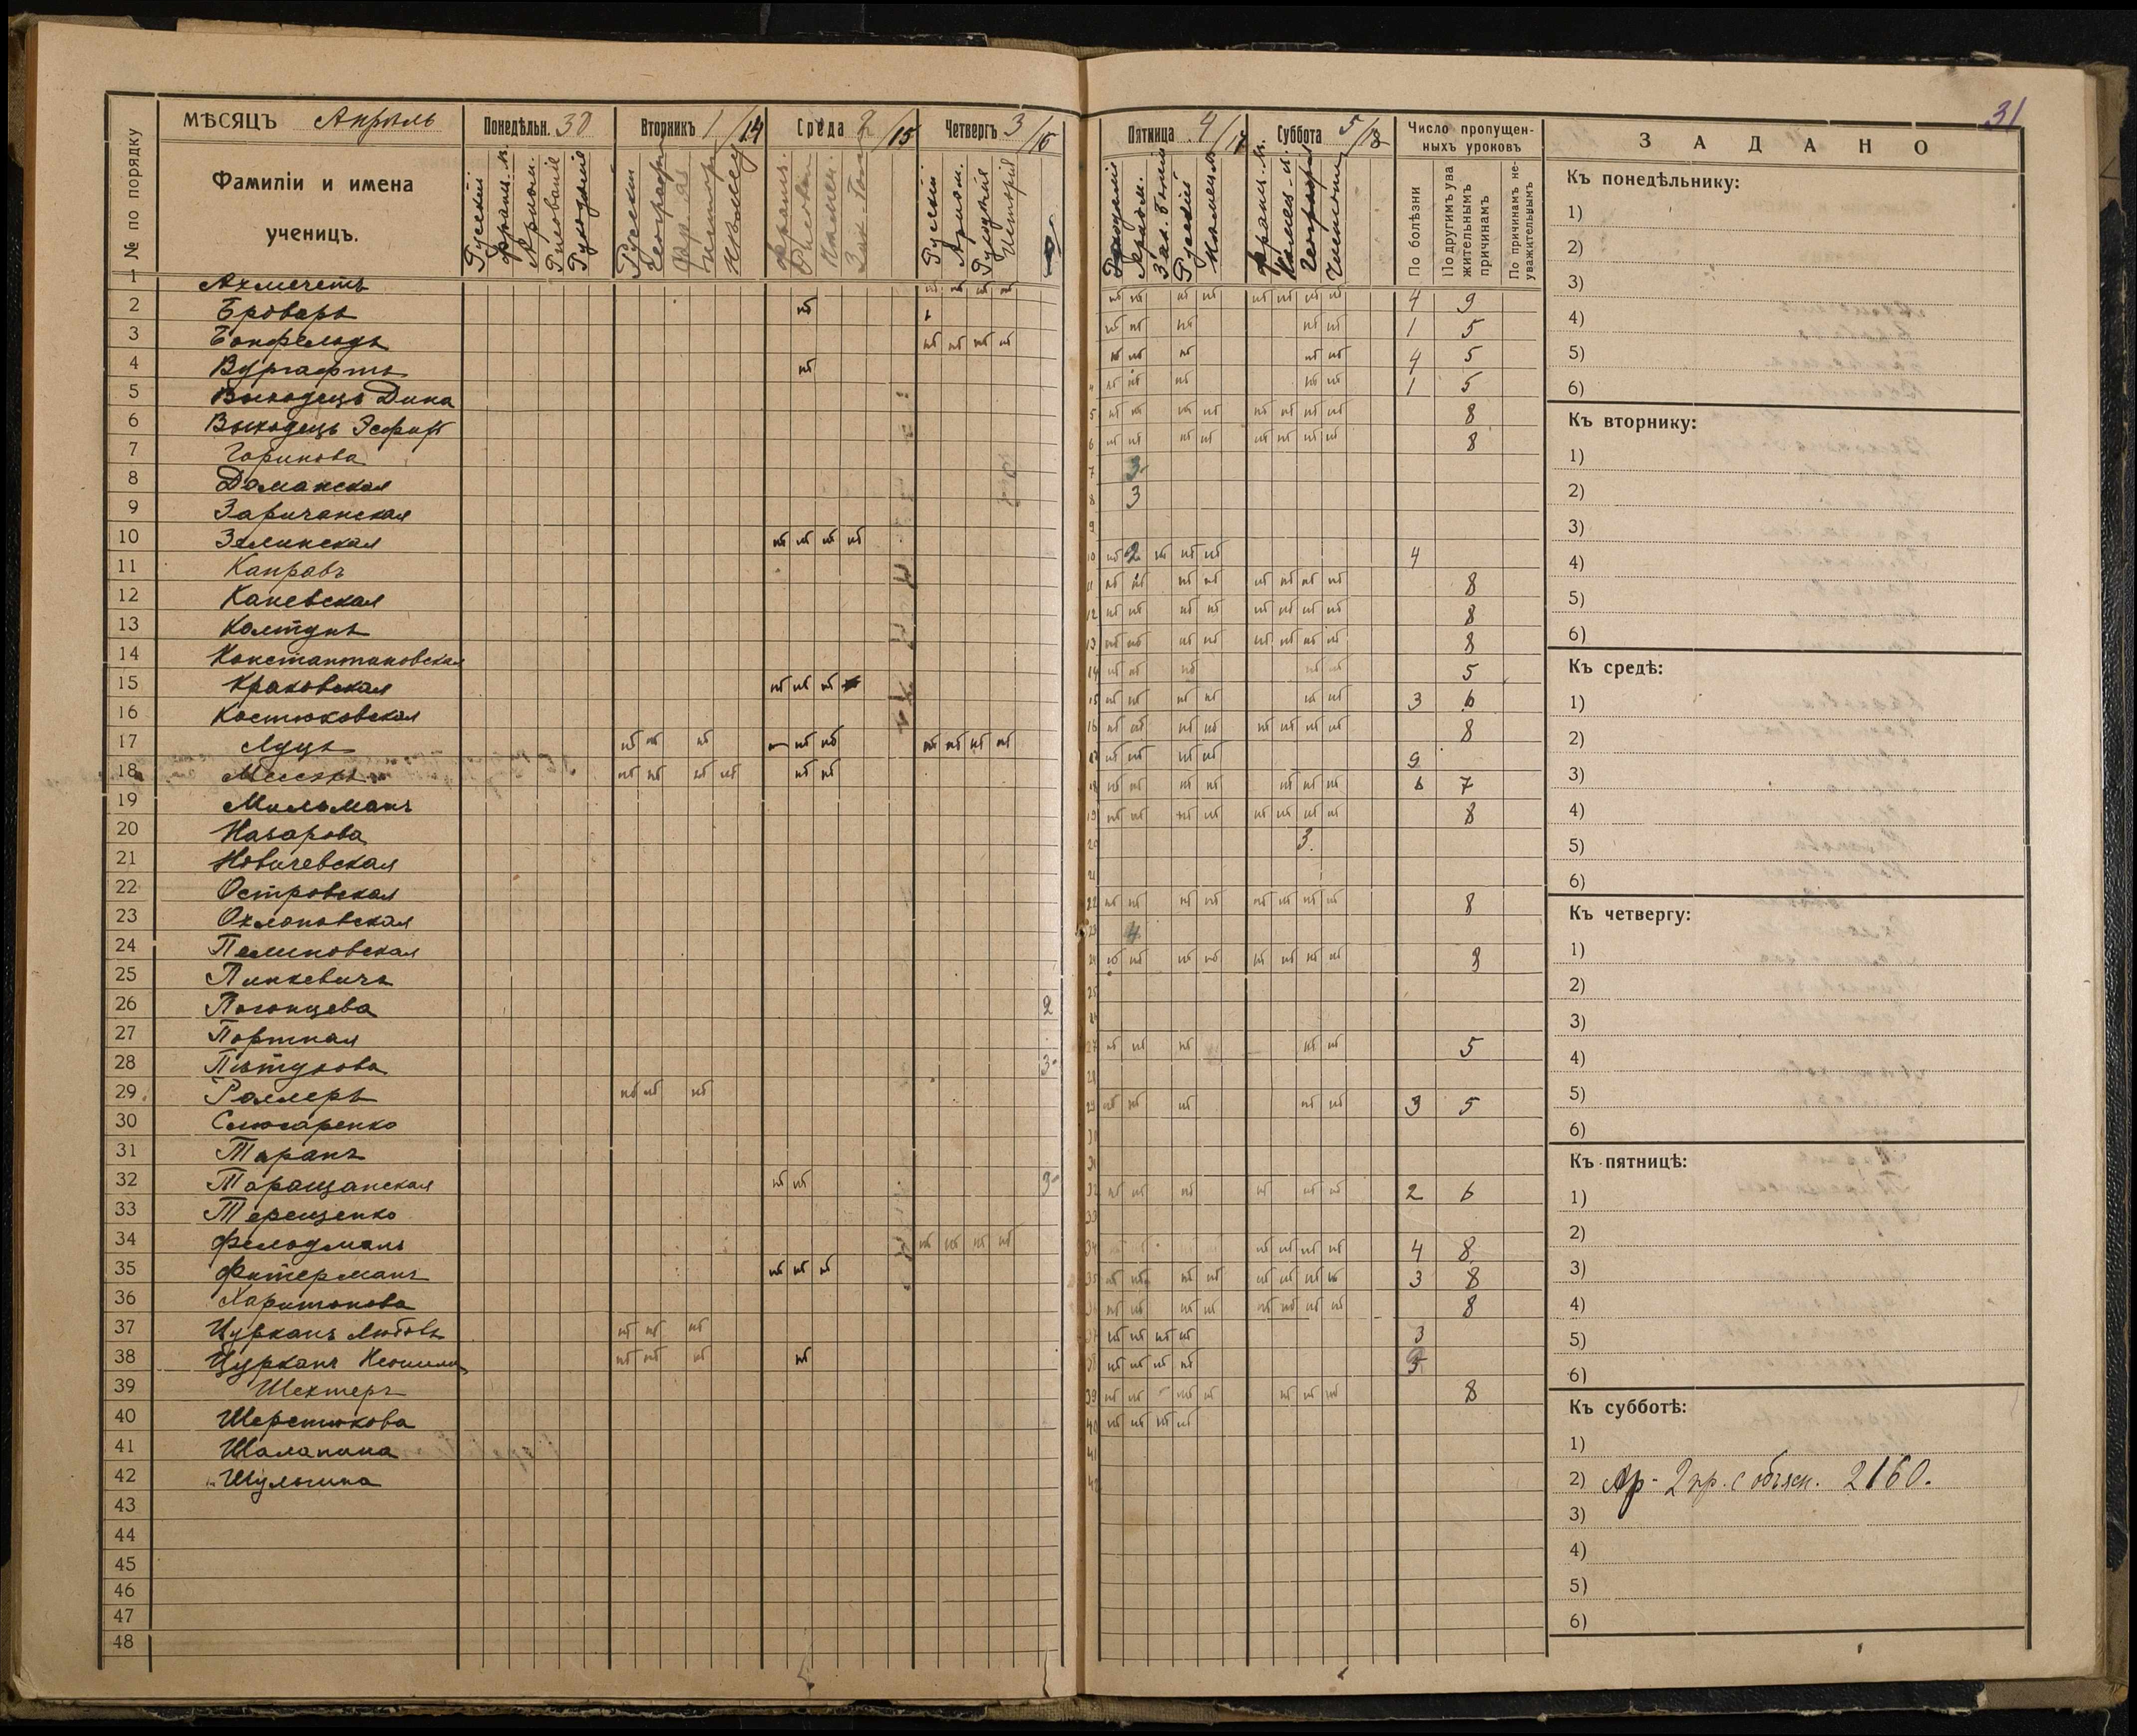 31
МѢСЯЦЪ Апрѣль
Понедѣльн. 30
Вторникъ 1/14
Среда 2/15
Четвергъ 3/16
Пятница 4/17
Суббота 5/18
Число пропущен-
ныхъ уроковъ
З А Д А Н О
№ по порядку
Фамиліи и имена
ученицъ.
Русскій
Франц. яз.
Ариѳм.
Рисованіе
Рукодѣліе
Русскій
Географія
Исторія
Франц.
Рисован
Русскій
Ариѳм.
Рукодѣлія
Исторія
Ариѳм.
Русскій
Нѣмецк
Франц. яз.
Нѣмец. яз.
Географія
По болѣзни
По другимъ ува
жительнымъ
причинамъ
По причинамъ не-
уважительнымъ
1 Ахмечетъ нб нб нб нб нб нб нб нб нб нб нб нб 4 9
2 Броваръ нб нб нб нб нб нб 1 5
3 Бонфельдъ нб нб нб нб нб нб нб нб нб 4 5
4 Вургафтъ нб нб нб нб нб нб 1 5
5 Выходецъ Дина нб нб нб нб нб нб нб нб 8
6 Выходецъ Эсфирь нб нб нб нб нб нб нб нб 8
7 Горинова 3-
8 Доманская 3
9 Заричанская
10 Зелинская нб нб нб нб нб 2 нб нб нб 4
11 Капровъ нб нб нб нб нб нб нб нб 8
12 Каневская нб нб нб нб нб нб нб нб 8
13 Колтунъ нб нб нб нб нб нб нб нб 8
14 Константиновская нб нб нб нб нб 5
15 Краковская нб нб нб нб нб нб нб нб нб 3 6
16 Костюковская нб нб нб нб нб нб нб нб 8
17 Луцъ нб нб нб нб нб нб нб нб нб нб нб нб нб 9
18 нб нб нб нб нб нб нб нб нб нб нб нб нб 6 7
19 Мильманъ нб нб нб нб нб нб нб нб 8
20 Назарова 3.
21 Новичевская
22 Островская нб нб нб нб нб нб нб нб 8
23 Охлоповская 4
24 Пелиновская нб нб нб нб нб нб нб нб 8
25 Пинкевичъ
26 Погонцева 2
27 Портная нб нб нб нб нб 5
28 Пѣтухова 3-
29 Роллеръ нб нб нб нб нб нб нб нб 3 5
30 Слюсаренко
31 Таранъ
32 Таращанская нб нб 3- нб нб нб нб нб нб 2 6
33 Терещенко
34 Фельдманъ нб нб нб нб нб нб нб нб 4 8
35 Фитерманъ нб нб нб нб нб нб нб нб нб нб нб 3 8
36 Харитонова нб нб нб нб нб нб нб нб 8
37 Цурканъ Любовь нб нб нб нб нб нб нб 3
38 Цурканъ нб нб нб нб нб нб нб нб
39 Шехтеръ нб нб нб нб нб нб нб 8
40 Шерстюкова нб нб нб нб
41 Шалапина
42 Шульгина
43
44
45
46
47
48
Къ понедѣльнику:
1)
2)
3)
4)
5)
6)
Къ вторнику:
1)
2)
3)
4)
5)
6)
Къ средѣ:
1)
2)
3)
4)
5)
6)
Къ четвергу:
1)
2)
3)
4)
5)
6)
Къ пятницѣ:
1)
2)
3)
4)
5)
6)
Къ субботѣ:
1)
2) Ар- 2 пр. с объясн. 2160.
3)
4)
5)
6)